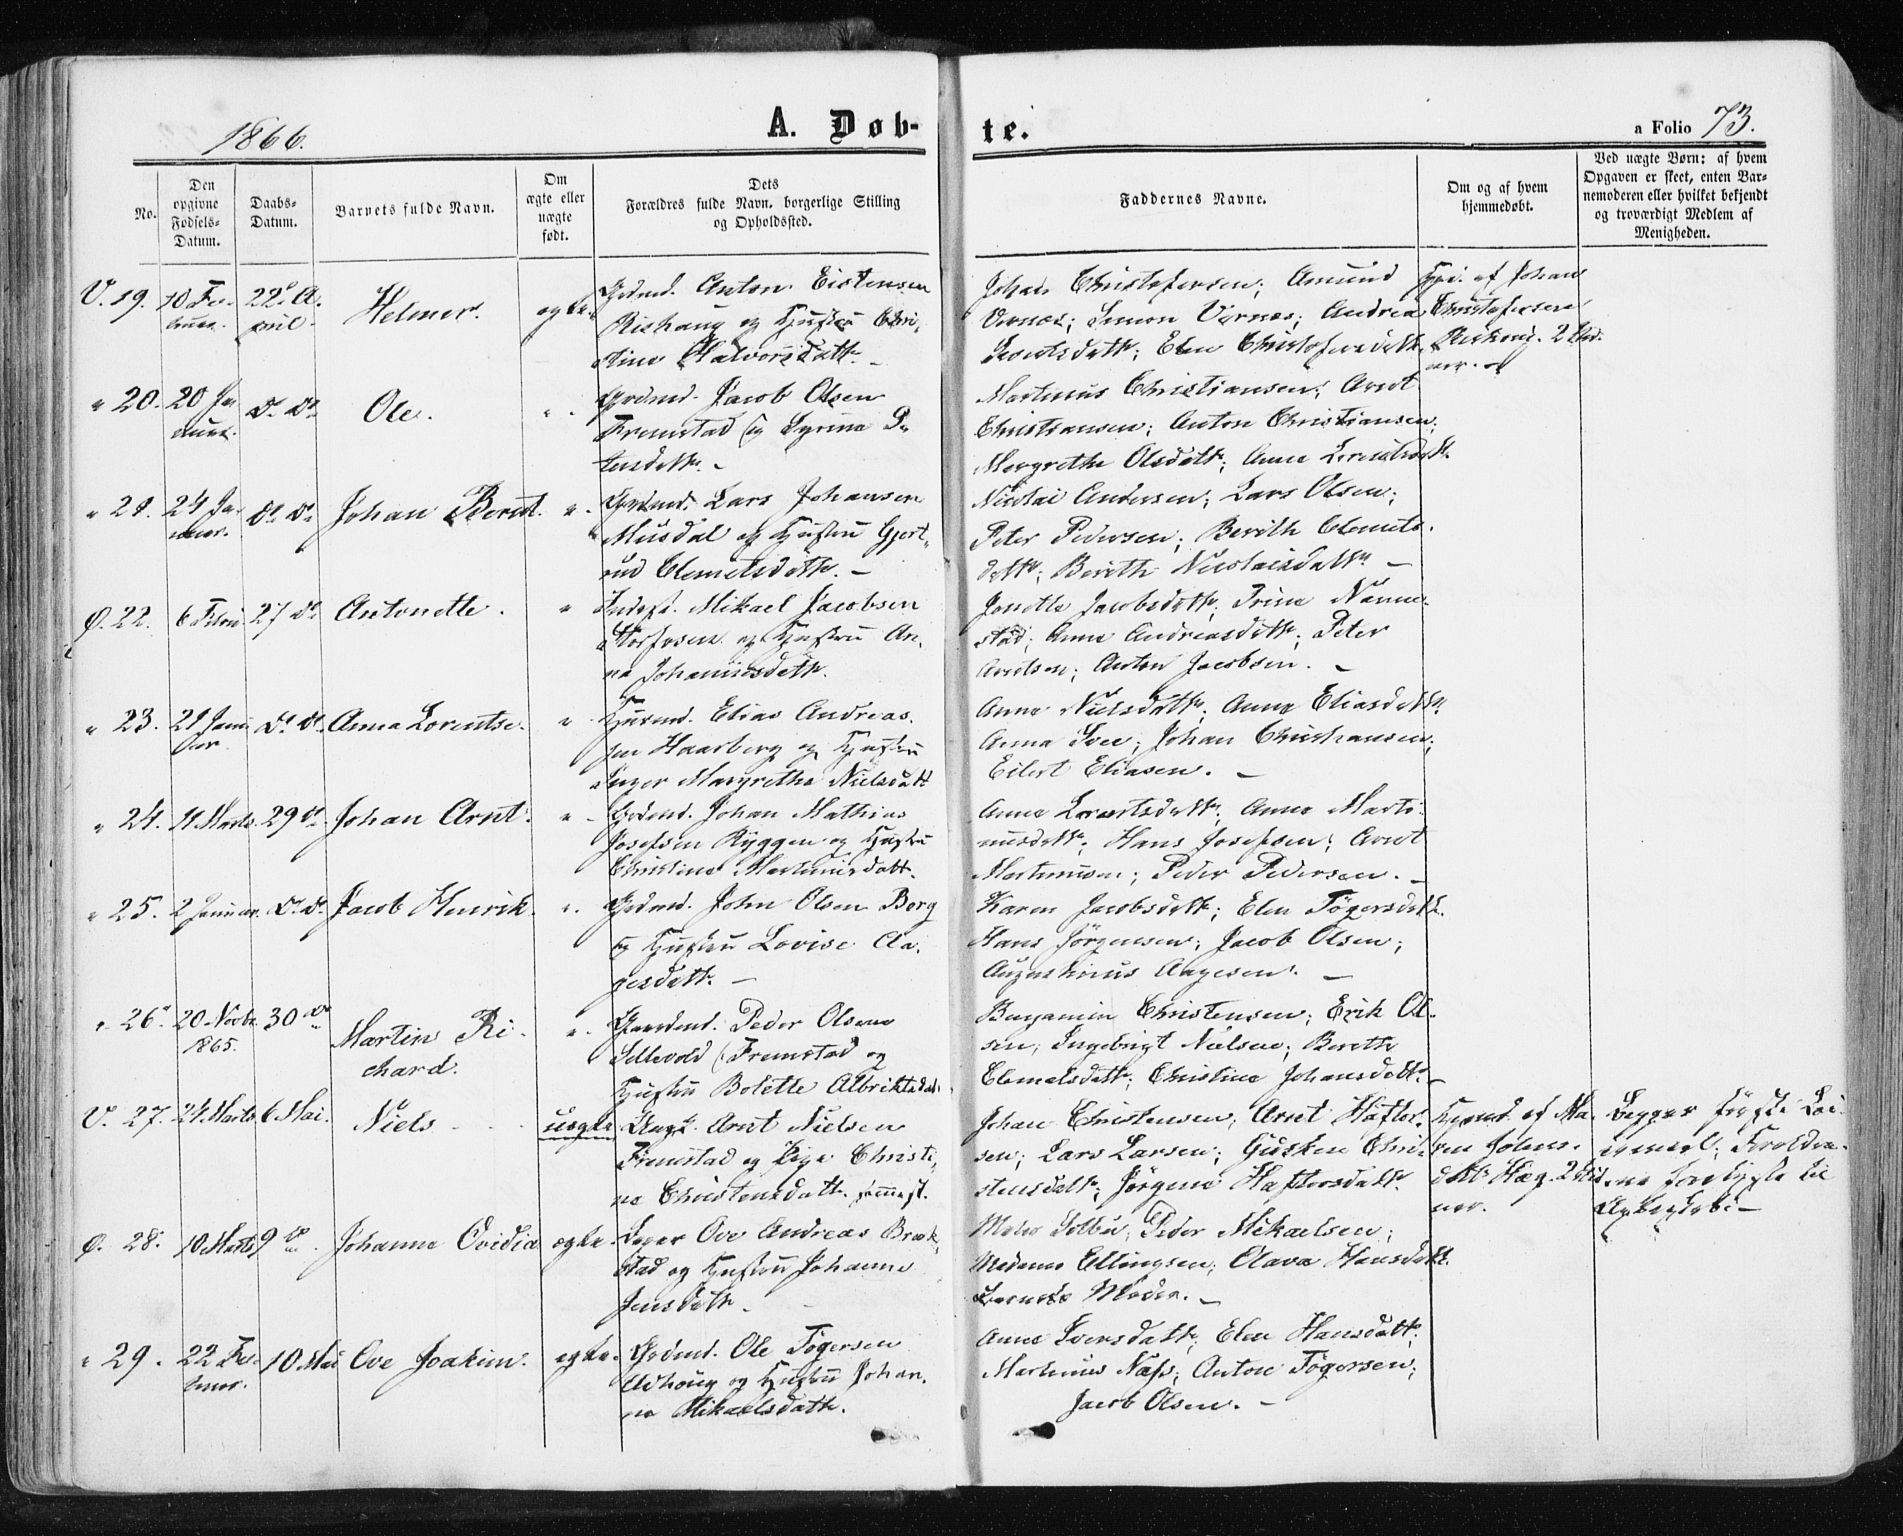 1866.
A. Døb-
te.
a Folio 73.
No.
Den
opgivne
Fødsels-
Datum.
Daabs-
Datum.
Barnets fulde Navn.
Om
ægte eller
uægte
født.
Dets
Forældres fulde Navn, borgerlige Stilling
og Opholdssted.
Faddernes Navne.
Om og af hvem
hjemmedøbt.
Ved uægte Børn: af hvem
Opgaven er skeet, enten Bar-
nemoderen eller hvilket bekjendt
og troværdigt Medlem af
Menigheden.
V. 19.
22de A-
pril.
Helmer.
ægte.
Grdmd. Anton Eistensen
Rishaug og Hustru Chri-
stine Halvorsdatt. –
Johan Christofersen; Amund
Vernæs; Simon Vernæs; Andrea
Elen Christofersdatt.
af Johan
Christofersen
" 20.
20 Ja-
nuar.
Do Do
Ole.
Grdmd. Jacob Olsen
Fremstad og Syrina P-
Martinus Christiansen; Arnt
Christiansen; Anton Christiansen;
Margrethe Olsdatt.; Anne
" 21.
24 Ja-
nuar.
Do Do
Johan Bernt.
Grdmd. Lars Johansen
Musdal og Hustru Gjert-
rud Clemetsdatt. –
Nicolai Andersen; Lars Olsen;
Peter Pedersen; Berith Clemets-
datt.; Berith Nicolaisdatt. –
Ø. 22.
6 Febru
27 Do
Antonette.
Inders. Mikael Jacobsen
og Hustru An-
na Johannesdatt.
Jonette Jacobsdatt.; Trine Nanne-
stad; Anne Andreasdatt.; Peter
Arntsen; Anton Jacobsen. –
" 23.
21 Janu-
ar.
Do Do
Anna Lorentse.
Elias Andreas-
sen Haarberg og Hustru
Inger Margrethe Nielsdatt
Anne Nielsdatt.; Anne Eliasdatt.
Anna Johan Christiansen;
Eilert Eliasen. –
" 24.
11 Marts
29 Do
Johan Arnt.
Grdmd. Johan Mathias
Josefsen Ryggen og Hustru
Christine Martinusdatt.
Anne Lorentsdatt.; Anne Marti-
nusdatt.; Hans Josefsen; Arnt
Martinusen; Peder Pedersen. –
" 25.
2 Januar.
Do Do
Jacob Henrik.
Grdmd. John Olsen Berg
og Hustru Lovise Aa-
gesdatt. –
Karen Jacobsdatt.; Elen Tøgersdatt.
Hans Jørgensen; Jacob Olsen;
Augustinus Aagesen. –
" 26.
20 Novbr.
1865.
30 Do
Martin Ri-
chard.
Gaardmd. Peder Olsen
Sellevold (Fremstad og
Hustru Bolette Albriktsdatt.
Benjamin Christensen; Erik Ol-
sen; Ingebrigt Nielsen; Berethe
Clemetsdatt.; Christine Johansdatt.
V. 27.
24 Marts
6 Mai.
Niels
uægte
Ungk. Arnt Nielsen
Fremstad og Pige Christi-
ne Christensdatt.
Johan Christensen; Arnt Hafter-
sen; Lars Larsen; Gusken Chri-
stensdatt.; Jørgine Haftorsdatt.
af Ma-
ren
datt. Hæg.
Begges første Lei-
ermaal; Foreldre-
ne
Ø. 28.
10 Marts
9 Do
Johanne Ovidia
ægte.
Ove Andreas Bræk-
stad og Hustru Johanne
Jensdatt.
Peder Mikaelsen;
Madame Ellingsen; Olava Hansdatt.
Barnets Moder. –
" 29.
22 Fe-
bruar.
10 Mai
Ove Joakim.
ægte.
Grdmd. Ole Tøgersen
Udhoug og Hustru Johan-
ne Mikaelsdatt.
Anne Iversdatt.; Elen Hansdatt.
Martinus Næss; Anton Tøgersen;
Jacob Olsen. –